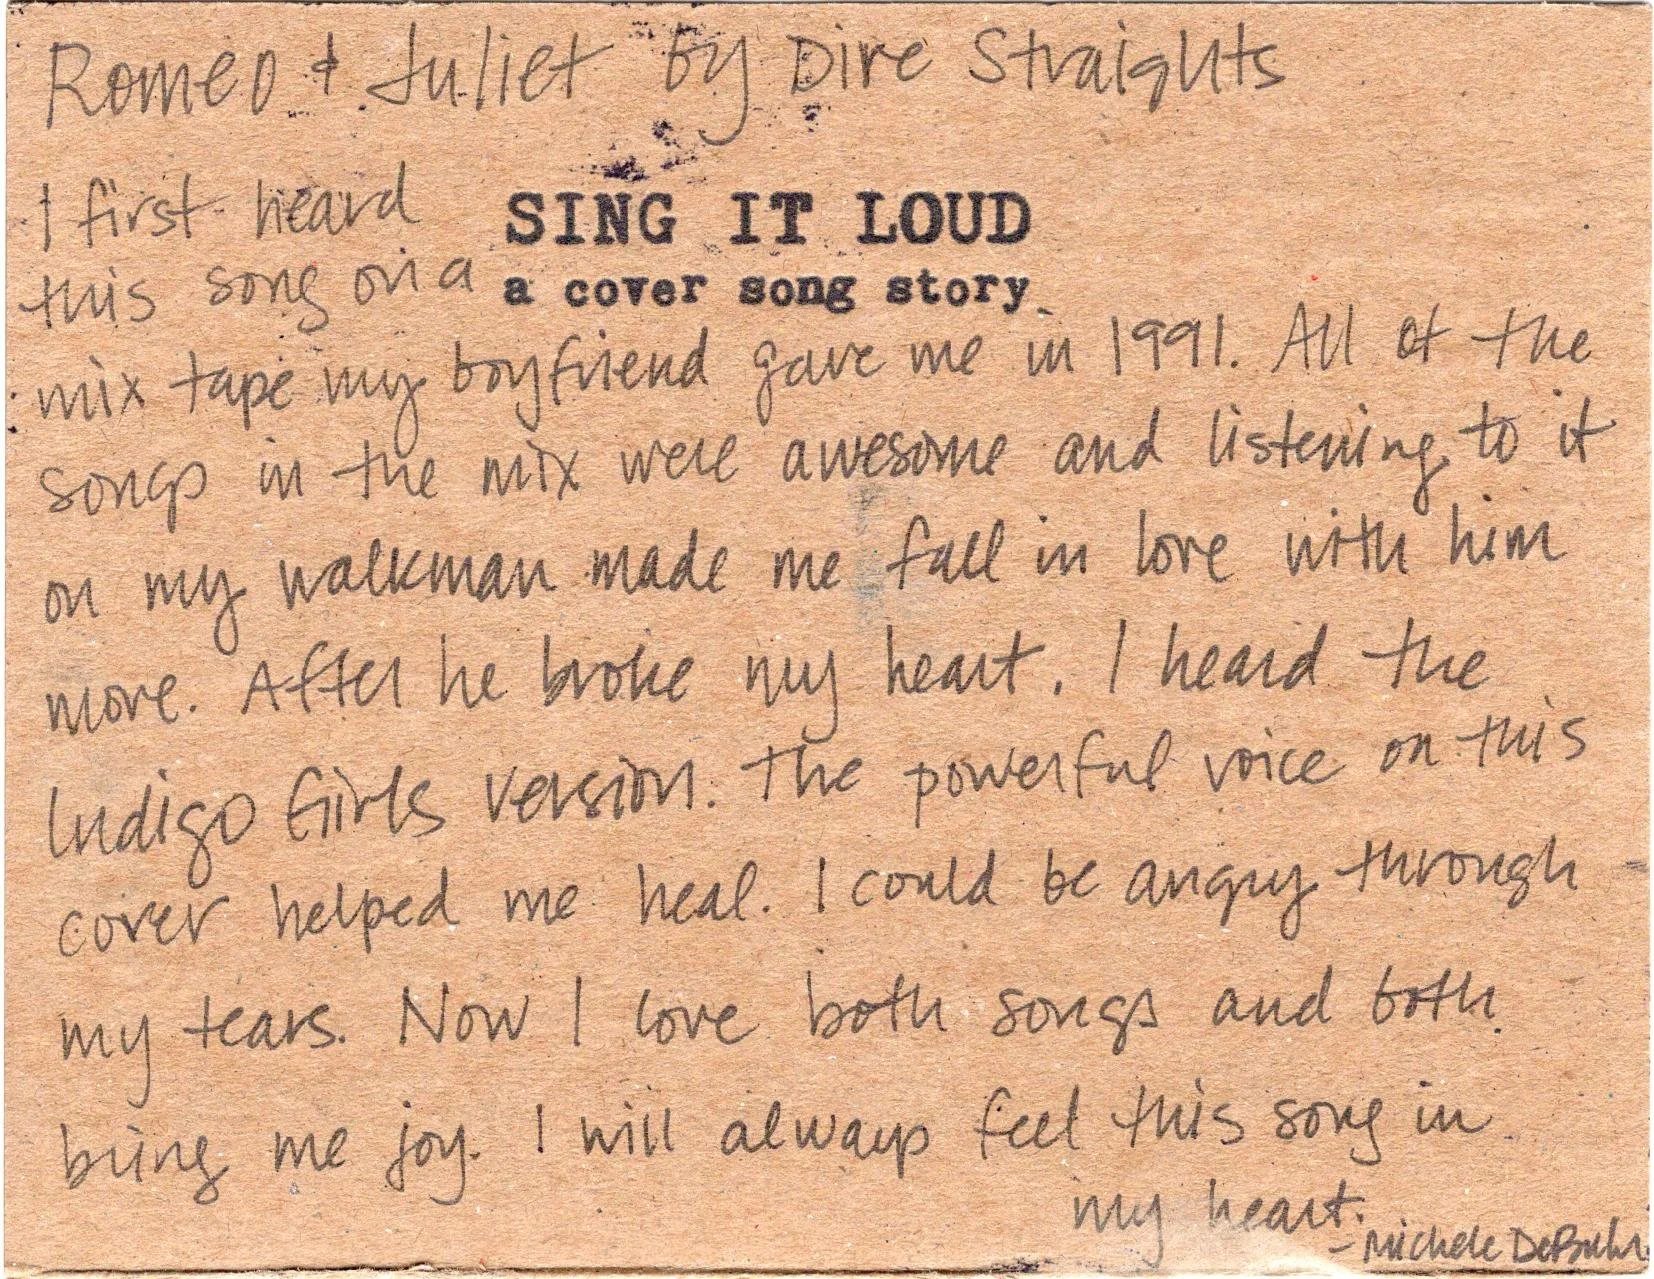 Romeo & Juliet by Dire Straights
SING IT LOUD
a cover song story
I first heard
this song on a
mix tape my boyfriend gave me in 1991. All of the
songs in the mix were awesome and listening to it
on my walkman made me fall in love with him
more. After he broke my heart, I heard the
Indigo Girls version. The powerful voice on this
cover helped me heal. I could be angry through
my tears. Now I love both songs and both
bring me joy. I will always feel this song in
my heart.
- Michele DeBuhr